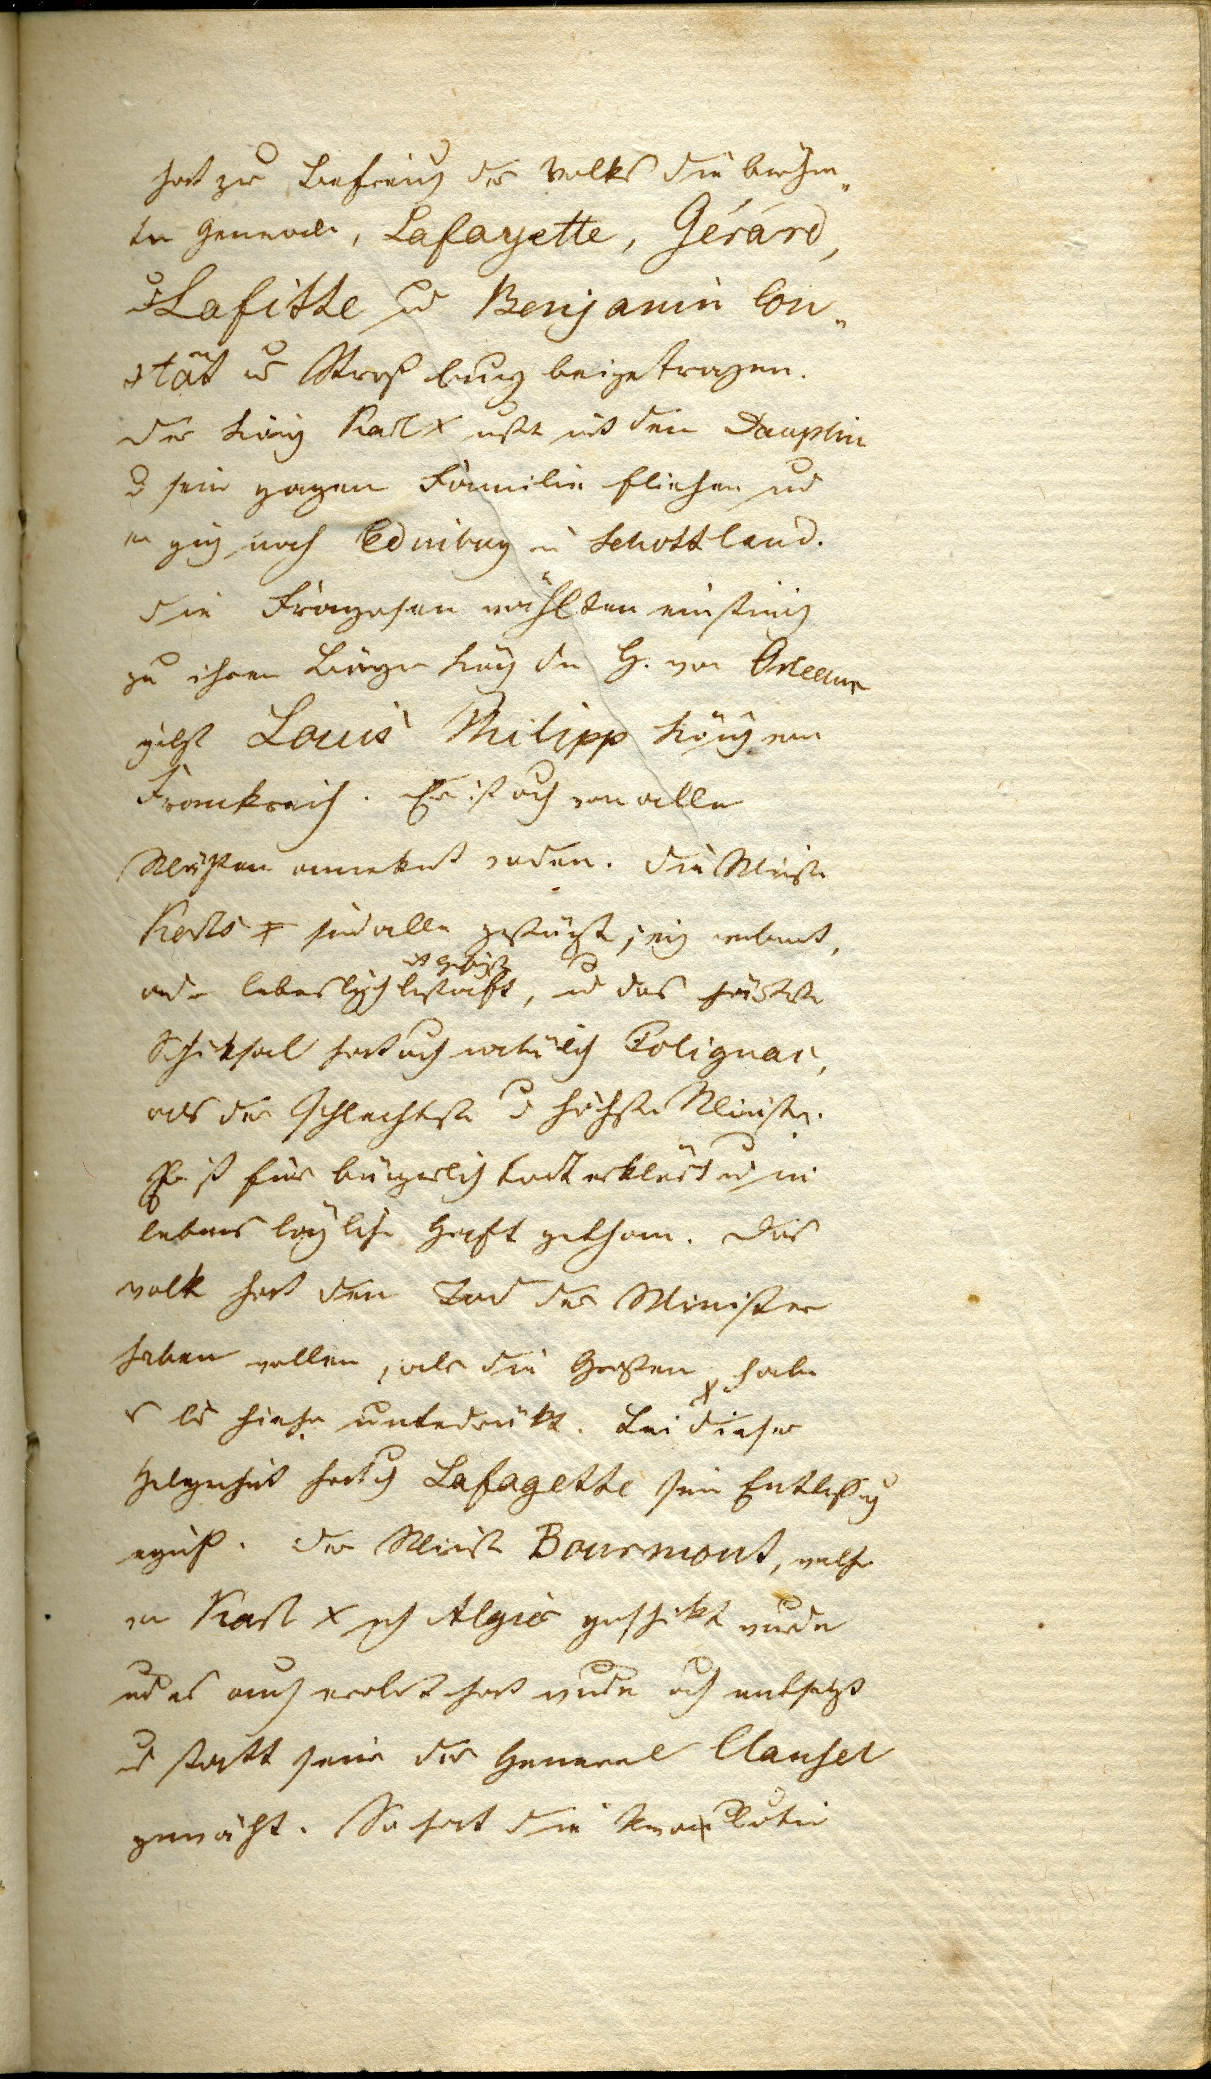 hat zur Befreiung des Volks die berühm„
ten Generale, Lafayette, Gérard,
u Lafitte und Benjamin Con„
stant u Straßburg beigetragen.
Der König Karl X mußte mit dem Dauphin
u seine ganzen Familie fliehen und
er ging nach Edniburg in Schottland.
Die Franzosen wählten einstimig
zu ihrem Bürger König den H. von Orleans
jetzt Louis Philipp König von
Franckreich. Er ist auch von allen
Mächten anerkent worden. Die Minister
Karls X sind alle gestürzt, einige verbant,
oder lebenslänglich bestraft, und das
Schiksal hat auch natürlich Polignac,
als der schlechteste u höchste Minister.
Er ist für bürgerlich todt erklärt und in
lebens längliche Haft gethan. Das
Volk hat den Tod der Minister
haben wollen, als die Großen haben
es bis hieher unterdrükt. Bei dieser
Gelegenheit hat auch Lafagette sein Entlassung
. Der Minister Bourmont, welcher
von Karl X nach Algier geschikt wurde
und es auch erobert hat wurde auch entsetzt
und statt seiner der General Clausel
gewählt. So hat die Revolution